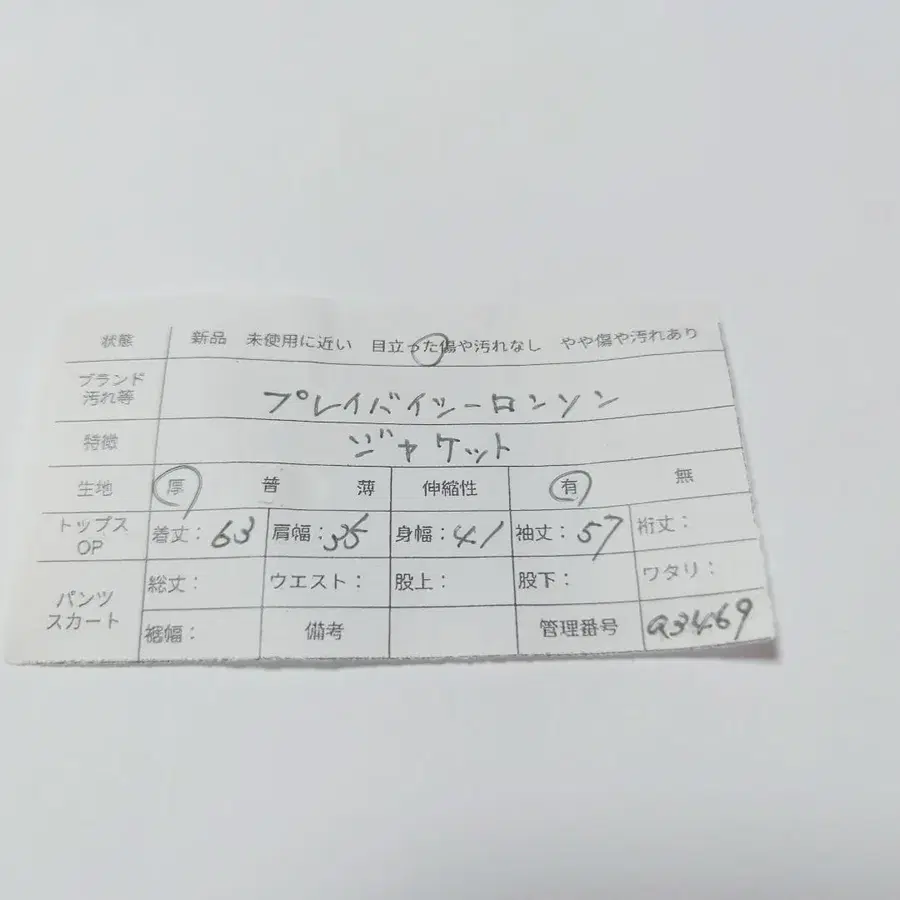 状態 新品 未使用に近い 目立った傷や汚れなし やや傷や汚れあり
ブランド
汚れ等 プレイバイシーロンソン
特徴 ジャケット
生地 厚 普 薄 伸縮性 有 無
トップス
OP 着丈：63 肩幅：35 身幅：41 袖丈：57 裄丈：
パンツ
スカート 総丈： ウエスト： 股上： 股下： ワタリ：
裾幅： 備考 管理番号 a3469